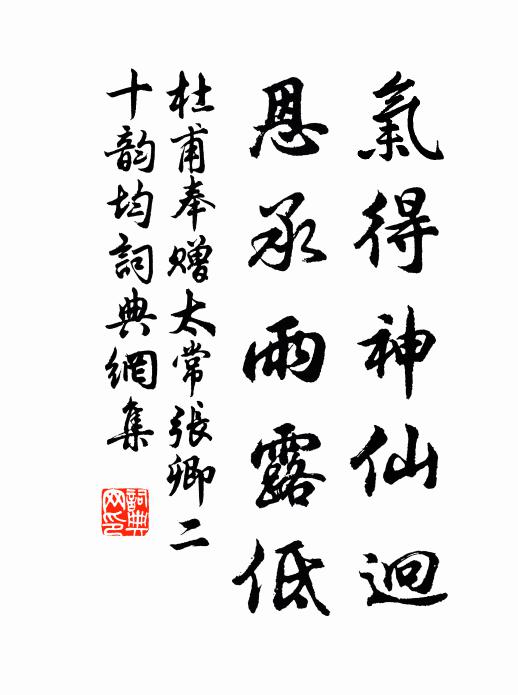 氣得神仙迥
恩承雨露低
杜甫奉贈太常張卿二
十韵均詞典網集
詞典网印